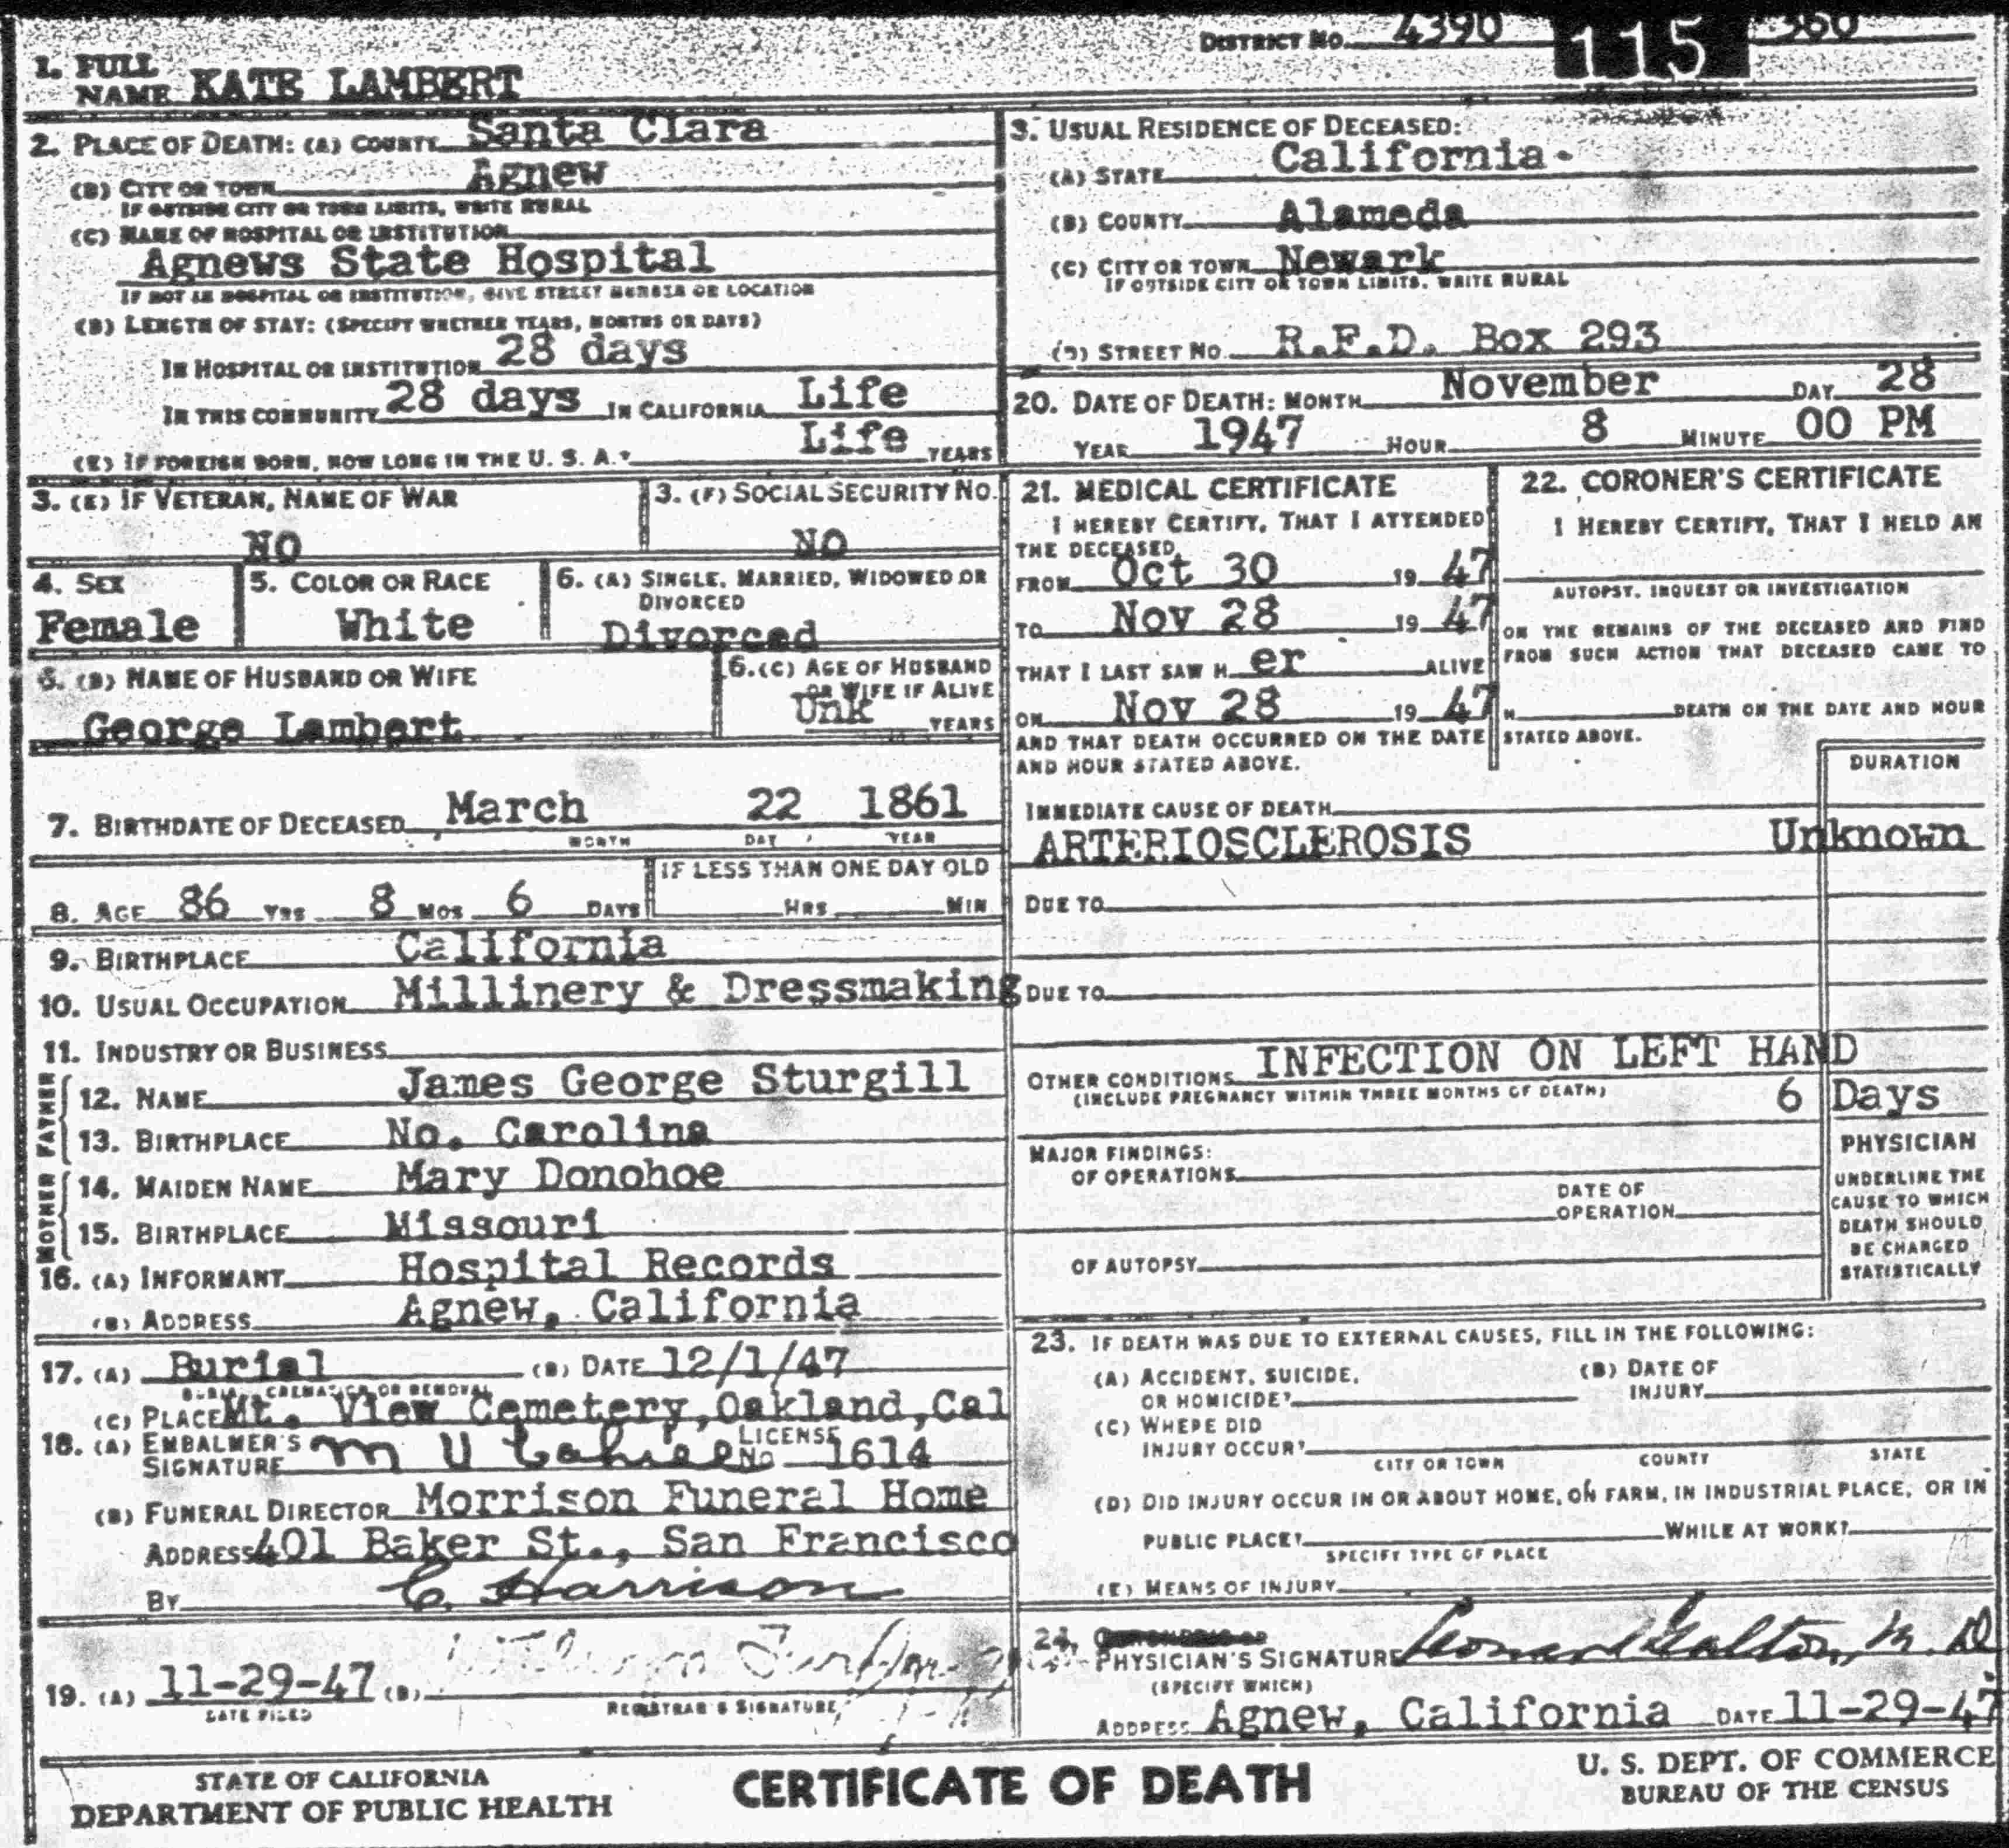 DISTRICT NO. 4390 115 360
1. FULL NAME KATE LAMBERT
2. PLACE OF DEATH: (A) COUNTY Santa Clara
(B) CITY OR TOWN Agnew
IF OUTSIDE CITY OR TOWN LIMITS, WRITE RURAL
(C) NAME OF HOSPITAL OR INSTITUTION
Agnews State Hospital
IF NOT IN HOSPITAL OR INSTITUTION, GIVE STREET NUMBER OR LOCATION
(D) LENGTH OF STAY: (SPECIFY WHETHER YEARS, MONTHS OR DAYS)
IN HOSPITAL OR INSTITUTION 28 days
IN THIS COMMUNITY 28 days IN CALIFORNIA Life
(E) IF FOREIGN BORN, HOW LONG IN THE U. S. A.? Life YEARS
3. USUAL RESIDENCE OF DECEASED:
(A) STATE California
(B) COUNTY Alameda
(C) CITY OR TOWN Newark
IF OUTSIDE CITY OR TOWN LIMITS, WRITE RURAL
(D) STREET NO. R.F.D. Box 293
20. DATE OF DEATH: MONTH November DAY 28
YEAR 1947 HOUR 8 MINUTE 00 PM
3. (E) IF VETERAN, NAME OF WAR
NO
3. (F) SOCIAL SECURITY NO.
NO
4. SEX
Female
5. COLOR OR RACE
White
6. (A) SINGLE, MARRIED, WIDOWED OR DIVORCED
Divorced
6. (B) NAME OF HUSBAND OR WIFE
George Lambert
6. (C) AGE OF HUSBAND OR WIFE IF ALIVE
Unk YEARS
7. BIRTHDATE OF DECEASED March 22 1861
MONTH DAY YEAR
8. AGE 86 YRS 8 MOS 6 DAYS
IF LESS THAN ONE DAY OLD
HRS MIN
9. BIRTHPLACE California
10. USUAL OCCUPATION Millinery & Dressmaking
11. INDUSTRY OR BUSINESS
FATHER
12. NAME James George Sturgill
13. BIRTHPLACE No. Carolina
MOTHER
14. MAIDEN NAME Mary Donohoe
15. BIRTHPLACE Missouri
16. (A) INFORMANT Hospital Records
(B) ADDRESS Agnew, California
17. (A) Burial (B) DATE 12/1/47
BURIAL, CREMATION OR REMOVAL
(C) PLACE Mt. View Cemetery, Oakland, Cal
18. (A) EMBALMER'S SIGNATURE M U LICENSE NO 1614
(B) FUNERAL DIRECTOR Morrison Funeral Home
ADDRESS 401 Baker St., San Francisco
BY C. Harrison
19. (A) 11-29-47 (B)
DATE FILED REGISTRAR'S SIGNATURE
21. MEDICAL CERTIFICATE
I HEREBY CERTIFY, THAT I ATTENDED
THE DECEASED
FROM Oct 30 19 47
TO Nov 28 19 47
THAT I LAST SAW H er ALIVE
ON Nov 28 19 47
AND THAT DEATH OCCURRED ON THE DATE
AND HOUR STATED ABOVE.
22. CORONER'S CERTIFICATE
I HEREBY CERTIFY, THAT I HELD AN
AUTOPSY, INQUEST OR INVESTIGATION
ON THE REMAINS OF THE DECEASED AND FIND
FROM SUCH ACTION THAT DECEASED CAME TO
H DEATH ON THE DATE AND HOUR
STATED ABOVE.
DURATION
IMMEDIATE CAUSE OF DEATH
ARTERIOSCLEROSIS Unknown
DUE TO
DUE TO
OTHER CONDITIONS INFECTION ON LEFT HAND
(INCLUDE PREGNANCY WITHIN THREE MONTHS OF DEATH) 6 Days
MAJOR FINDINGS:
OF OPERATIONS
DATE OF OPERATION
OF AUTOPSY
PHYSICIAN
UNDERLINE THE
CAUSE TO WHICH
DEATH SHOULD
BE CHARGED
STATISTICALLY
23. IF DEATH WAS DUE TO EXTERNAL CAUSES, FILL IN THE FOLLOWING:
(A) ACCIDENT, SUICIDE, OR HOMICIDE?
(B) DATE OF INJURY
(C) WHERE DID INJURY OCCUR?
CITY OR TOWN COUNTY STATE
(D) DID INJURY OCCUR IN OR ABOUT HOME, ON FARM, IN INDUSTRIAL PLACE, OR IN
PUBLIC PLACE? WHILE AT WORK?
SPECIFY TYPE OF PLACE
(E) MEANS OF INJURY
24. PHYSICIAN'S SIGNATURE Leonard Galton, M. D
(SPECIFY WHICH)
ADDRESS Agnew, California DATE 11-29-47
STATE OF CALIFORNIA
DEPARTMENT OF PUBLIC HEALTH
CERTIFICATE OF DEATH
U. S. DEPT. OF COMMERCE
BUREAU OF THE CENSUS